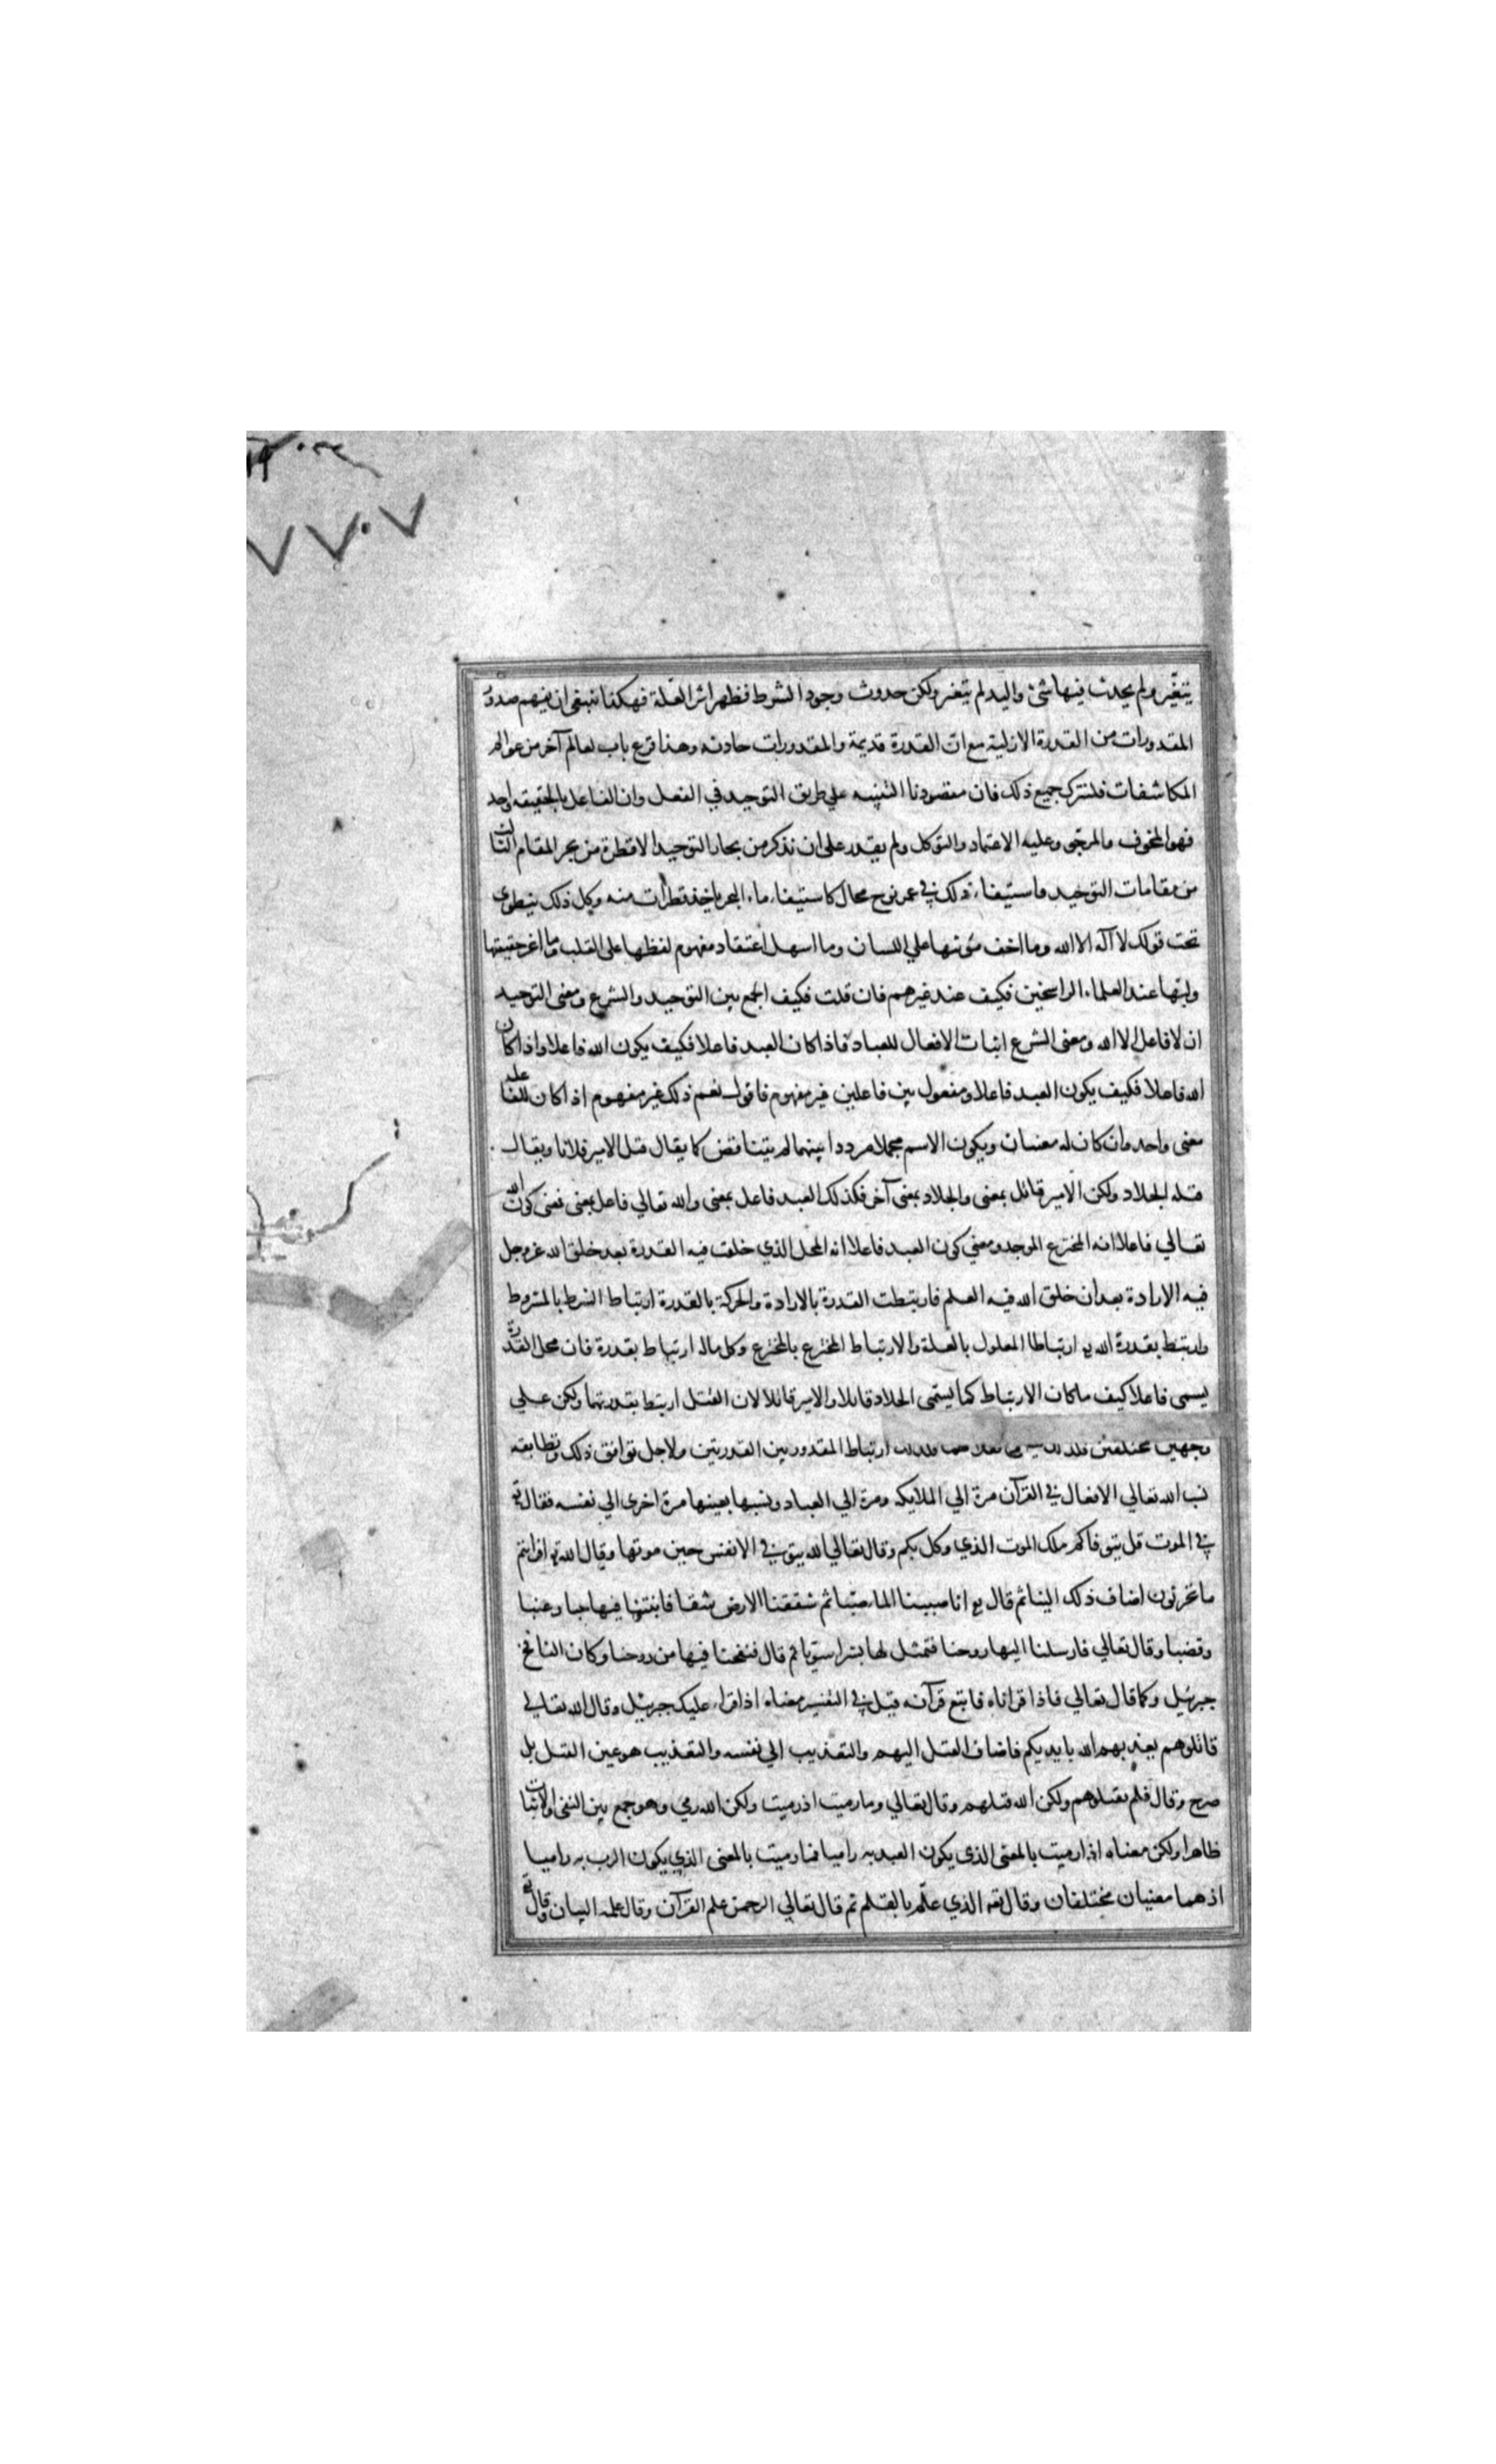 يتغيّر ولم يحدث فيها شئ واليد لم يتغير ولكن حدوث وجود الشرط فظهر اثر العلّة فهكذا ينبغي ان يفهم صدور
المقدورات من القدرة الازلية مع ان القدرة قديمة والمقدورات حادثه وهذا قرع باب لعالم آخر من عوالم
المكاشفات فلنترك جميع ذلك فان مقصودنا التنبيه علي طريق التوحيد في الفعل وان الفاعل بالحقيقه واحد
فهو المخوف والمرجّو وعليه الاعتماد والتوكل ولم يقدر على ان نذكر من بحار التوحيد الا قطرة من بحر المقام الثالث
من مقامات التوحيد واستيفاء ذلك في عمر نوح محال كاستيفاء ماء البحر باخذ قطرات منه وكل ذلك ينطوى
تحت قولك لا آله الا الله وما اخف مئونتها علي اللسان وما اسهل اعتقاد مفهوم لفظها على القلب وما اعز حقيقتها
ولبّها عند العلماء الراسخين فكيف عند غيرهم فان قلت فكيف الجمع بين التوحيد والشرع ومعنى التوحيد
ان لا فاعل الا الله ومعنى الشرع اثبات الافعال للعباد فاذا كان العبد فاعلا فكيف يكون الله فاعلا واذا كان
الله فاعلا فكيف يكون العبد فاعلا ومفعول بين فاعلين غير مفهوم فاقول نعم ذلك غير مفهوم اذا كان للفاعل
معنى واحد وان كان له معنيان ويكون الاسم مجملا مرددا بينهما لم يتناقض كما يقال قتل الامير فلانا ويقال
قتله الجلاد ولكن الامير قاتل بمعنى والجلاد بمعنى آخر فكذلك العبد فاعل بمعنى والله تعالي فاعل بمعنى فمعنى كون الله
تعالي فاعلا انه المخترع الموجد ومعني كون العبد فاعلا انه المحل الذي خلقت فيه القدرة بعد خلق الله عز وجل
فيه الارادة بعد ان خلق الله فيه العلم فارتبطت القدرة بالارادة والحركة بالقدرة ارتباط الشرط بالمشروط
وارتبط بقدرة الله ارتباطا المعلول بالعلة والارتباط المخترع بالمخترع وكل ماله ارتباط بقدرة فان محل القدرة
يسمى فاعلا كيف ماكان الارتباط كما يسمّى الجلاد قاتلا والامير قاتلا لان القتل ارتبط بقدرتهما ولكن علي
وجهين مختلفين ارتباط المقدور بين القدرتين ولاجل توافق ذلك وتطابقه
نسب الله تعالي الافعال في القرآن مرة الي الملايكه ومرة الي العباد ونسبها بعينها مرة اخرى الي نفسه فقال تع
في الموت قل يتوفاكم ملك الموت الذي وكل بكم وقال تعالي الله يتوفي الانفس حين موتها وقال الله تع افرايتم
ما تحرثون اضاف ذلك الينا ثم قال تع انا صببنا الماء صبّا ثم شققنا الارض شقا فانبتنا فيها حبا وعنبا
وقضبا وقال تعالي فارسلنا اليها روحنا فتمثل لها بشرا سويّا ثم قال فنفخنا فيها من روحنا وكان النافخ
جبرئيل وكما قال تعالي فاذا قراناه فاتبع قرآنه قيل في التفسير معناه اذا قراء عليك جبرئيل وقال الله تعالي
قاتلوهم يعذبهم الله بايديكم فاضاف القتل اليهم والتعذيب الي نفسه والتعذيب هو عين القتل بل
صرح وقال فلم تقتلوهم ولكن الله قتلهم وقال تعالي وما رميت اذ رميت ولكن الله رمي وهو جمع بين النفي والاثبات
ظاهرا ولكن معناه اذ ارميت بالمعنى الذى يكون العبد به راميا فما رميت بالمعنى الذي يكون الرب به راميا
اذ هما معنيان مختلفان وقال تعه الذي علّم بالقلم ثم قال تعالي الرحمن علم القرآن وقال علمه البيان وقال تع